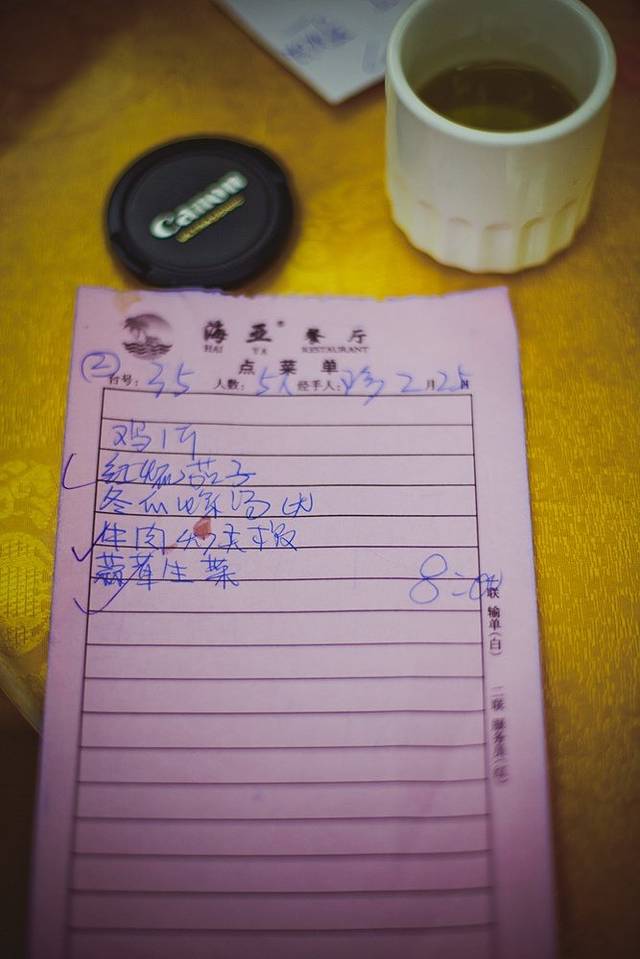 Canon
海亚® 餐厅
HAI YA RESTAURANT
点菜单
② 台号: 35 人数: 5人 经手人: 2月25日
鸡1斤
红烧茄子
冬瓜 汤 大
牛肉
蒜茸生菜
8:00
联 输单(白) 二联 服务员(红)